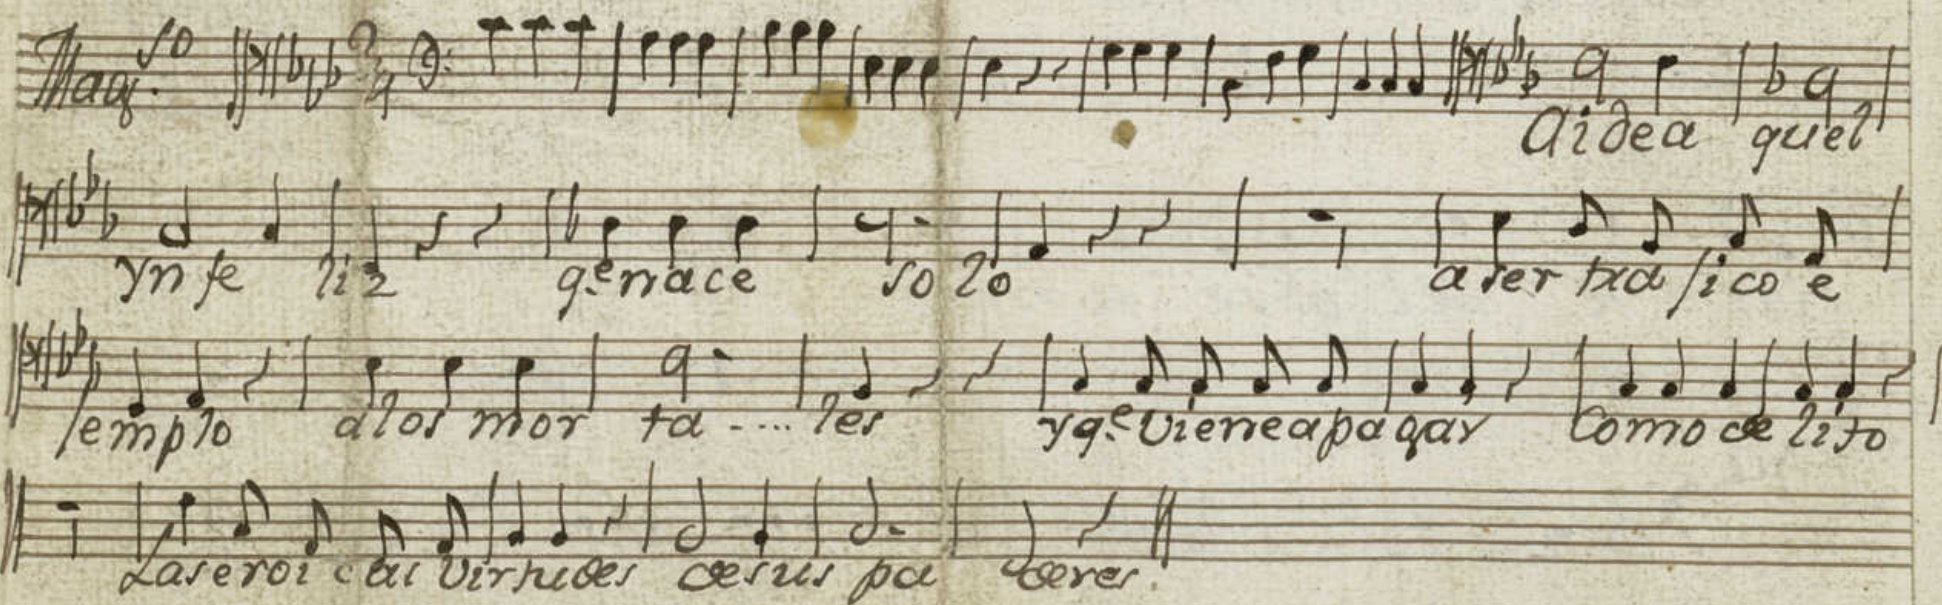 Mag.so
Ai de a quel
yn fe liz q.e nace so lo a ser tra sico e
semplo alos mor ta .... les y q.e viene a pagar Como de lito
Las eroi cas virtudes de sus pa deres